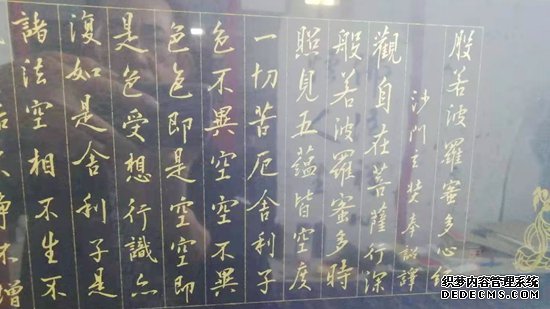 般若波羅蜜多心经
沙門玄奘奉詔譯
觀自在菩薩行深
般若波羅蜜多時
照見五蘊皆空度
一切苦厄舍利子
色不異空空不異
色色即是空空即
是色受想行識亦
復如是舍利子是
諸法空相不生不
不净不增
织梦内容管理系统
DEDECMS.COM